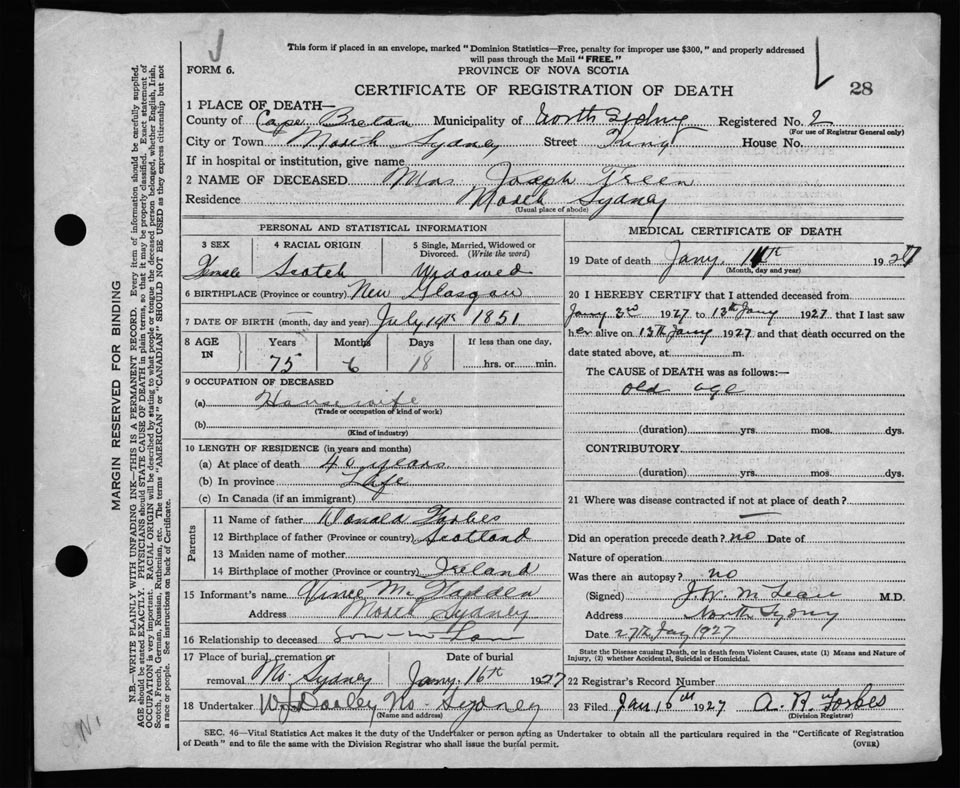 This form if placed in an envelope, marked "Dominion Statistics—Free, penalty for improper use $300," and properly addressed
will pass through the Mail "FREE."
FORM 6. PROVINCE OF NOVA SCOTIA
CERTIFICATE OF REGISTRATION OF DEATH 28
1 PLACE OF DEATH—
County of Cape Breton Municipality of North Sydney Registered No. 2
(For use of Registrar General only)
City or Town North Sydney Street House No.
If in hospital or institution, give name
2 NAME OF DECEASED Mrs Joseph Freen
Residence North Sydney
(Usual place of abode)
PERSONAL AND STATISTICAL INFORMATION
3 SEX 4 RACIAL ORIGIN 5 Single, Married, Widowed or Divorced. (Write the word)
Female Scotch Widowed
6 BIRTHPLACE (Province or country) New Glasgow
7 DATE OF BIRTH (month, day and year) July 14th 1851
8 AGE IN Years Months Days If less than one day,
75 6 18 hrs. or min.
9 OCCUPATION OF DECEASED
(a) House wife
(Trade or occupation of kind of work)
(b)
(Kind of industry)
10 LENGTH OF RESIDENCE (in years and months)
(a) At place of death 40 years
(b) In province Life
(c) In Canada (if an immigrant)
Parents
11 Name of father Donald Forbes
12 Birthplace of father (Province or country) Scotland
13 Maiden name of mother
14 Birthplace of mother (Province or country) Ireland
15 Informant's name Vince McFadden
Address North Sydney
16 Relationship to deceased Son-in-law
17 Place of burial, cremation or removal No. Sydney Date of burial Jany. 16th 1927
18 Undertaker W Dooley No- Sydney
(Name and address)
MEDICAL CERTIFICATE OF DEATH
19 Date of death Jany. 14th 1927
(Month, day and year)
20 I HEREBY CERTIFY that I attended deceased from
Jany 3rd 1927 to 13th Jany 1927 that I last saw
her alive on 13th Jany 1927 and that death occurred on the
date stated above, at m.
The CAUSE of DEATH was as follows:—
old age
(duration) yrs. mos. dys.
CONTRIBUTORY
(duration) yrs. mos. dys.
21 Where was disease contracted if not at place of death?
Did an operation precede death? no Date of
Nature of operation
Was there an autopsy? no
(Signed) J.W. McLean M.D.
Address North Sydney
Date 27th Jany 1927
State the Disease causing Death, or in death from Violent Causes, state (1) Means and Nature of
Injury, (2) whether Accidental, Suicidal or Homicidal.
22 Registrar's Record Number
23 Filed Jan 16th 1927 A. R. Forbes
(Division Registrar)
SEC. 46—Vital Statistics Act makes it the duty of the Undertaker or person acting as Undertaker to obtain all the particulars required in the "Certificate of Registration
of Death" and to file the same with the Division Registrar who shall issue the burial permit. (OVER)
MARGIN RESERVED FOR BINDING
N.B.—WRITE PLAINLY WITH UNFADING INK—THIS IS A PERMANENT RECORD. Every item of information should be carefully supplied.
AGE should be stated EXACTLY. PHYSICIANS should STATE CAUSE OF DEATH in plain terms, so that it may be properly classified. Exact statement of
OCCUPATION is very important. RACIAL ORIGIN will be described by stating to what people or tongue the deceased person belonged, whether English, Irish,
Scotch, French, German, Russian, Ruthenian, etc. The terms "AMERICAN" or "CANADIAN" SHOULD NOT BE USED as they express citizenship but not
a race or people. See instructions on back of Certificate.